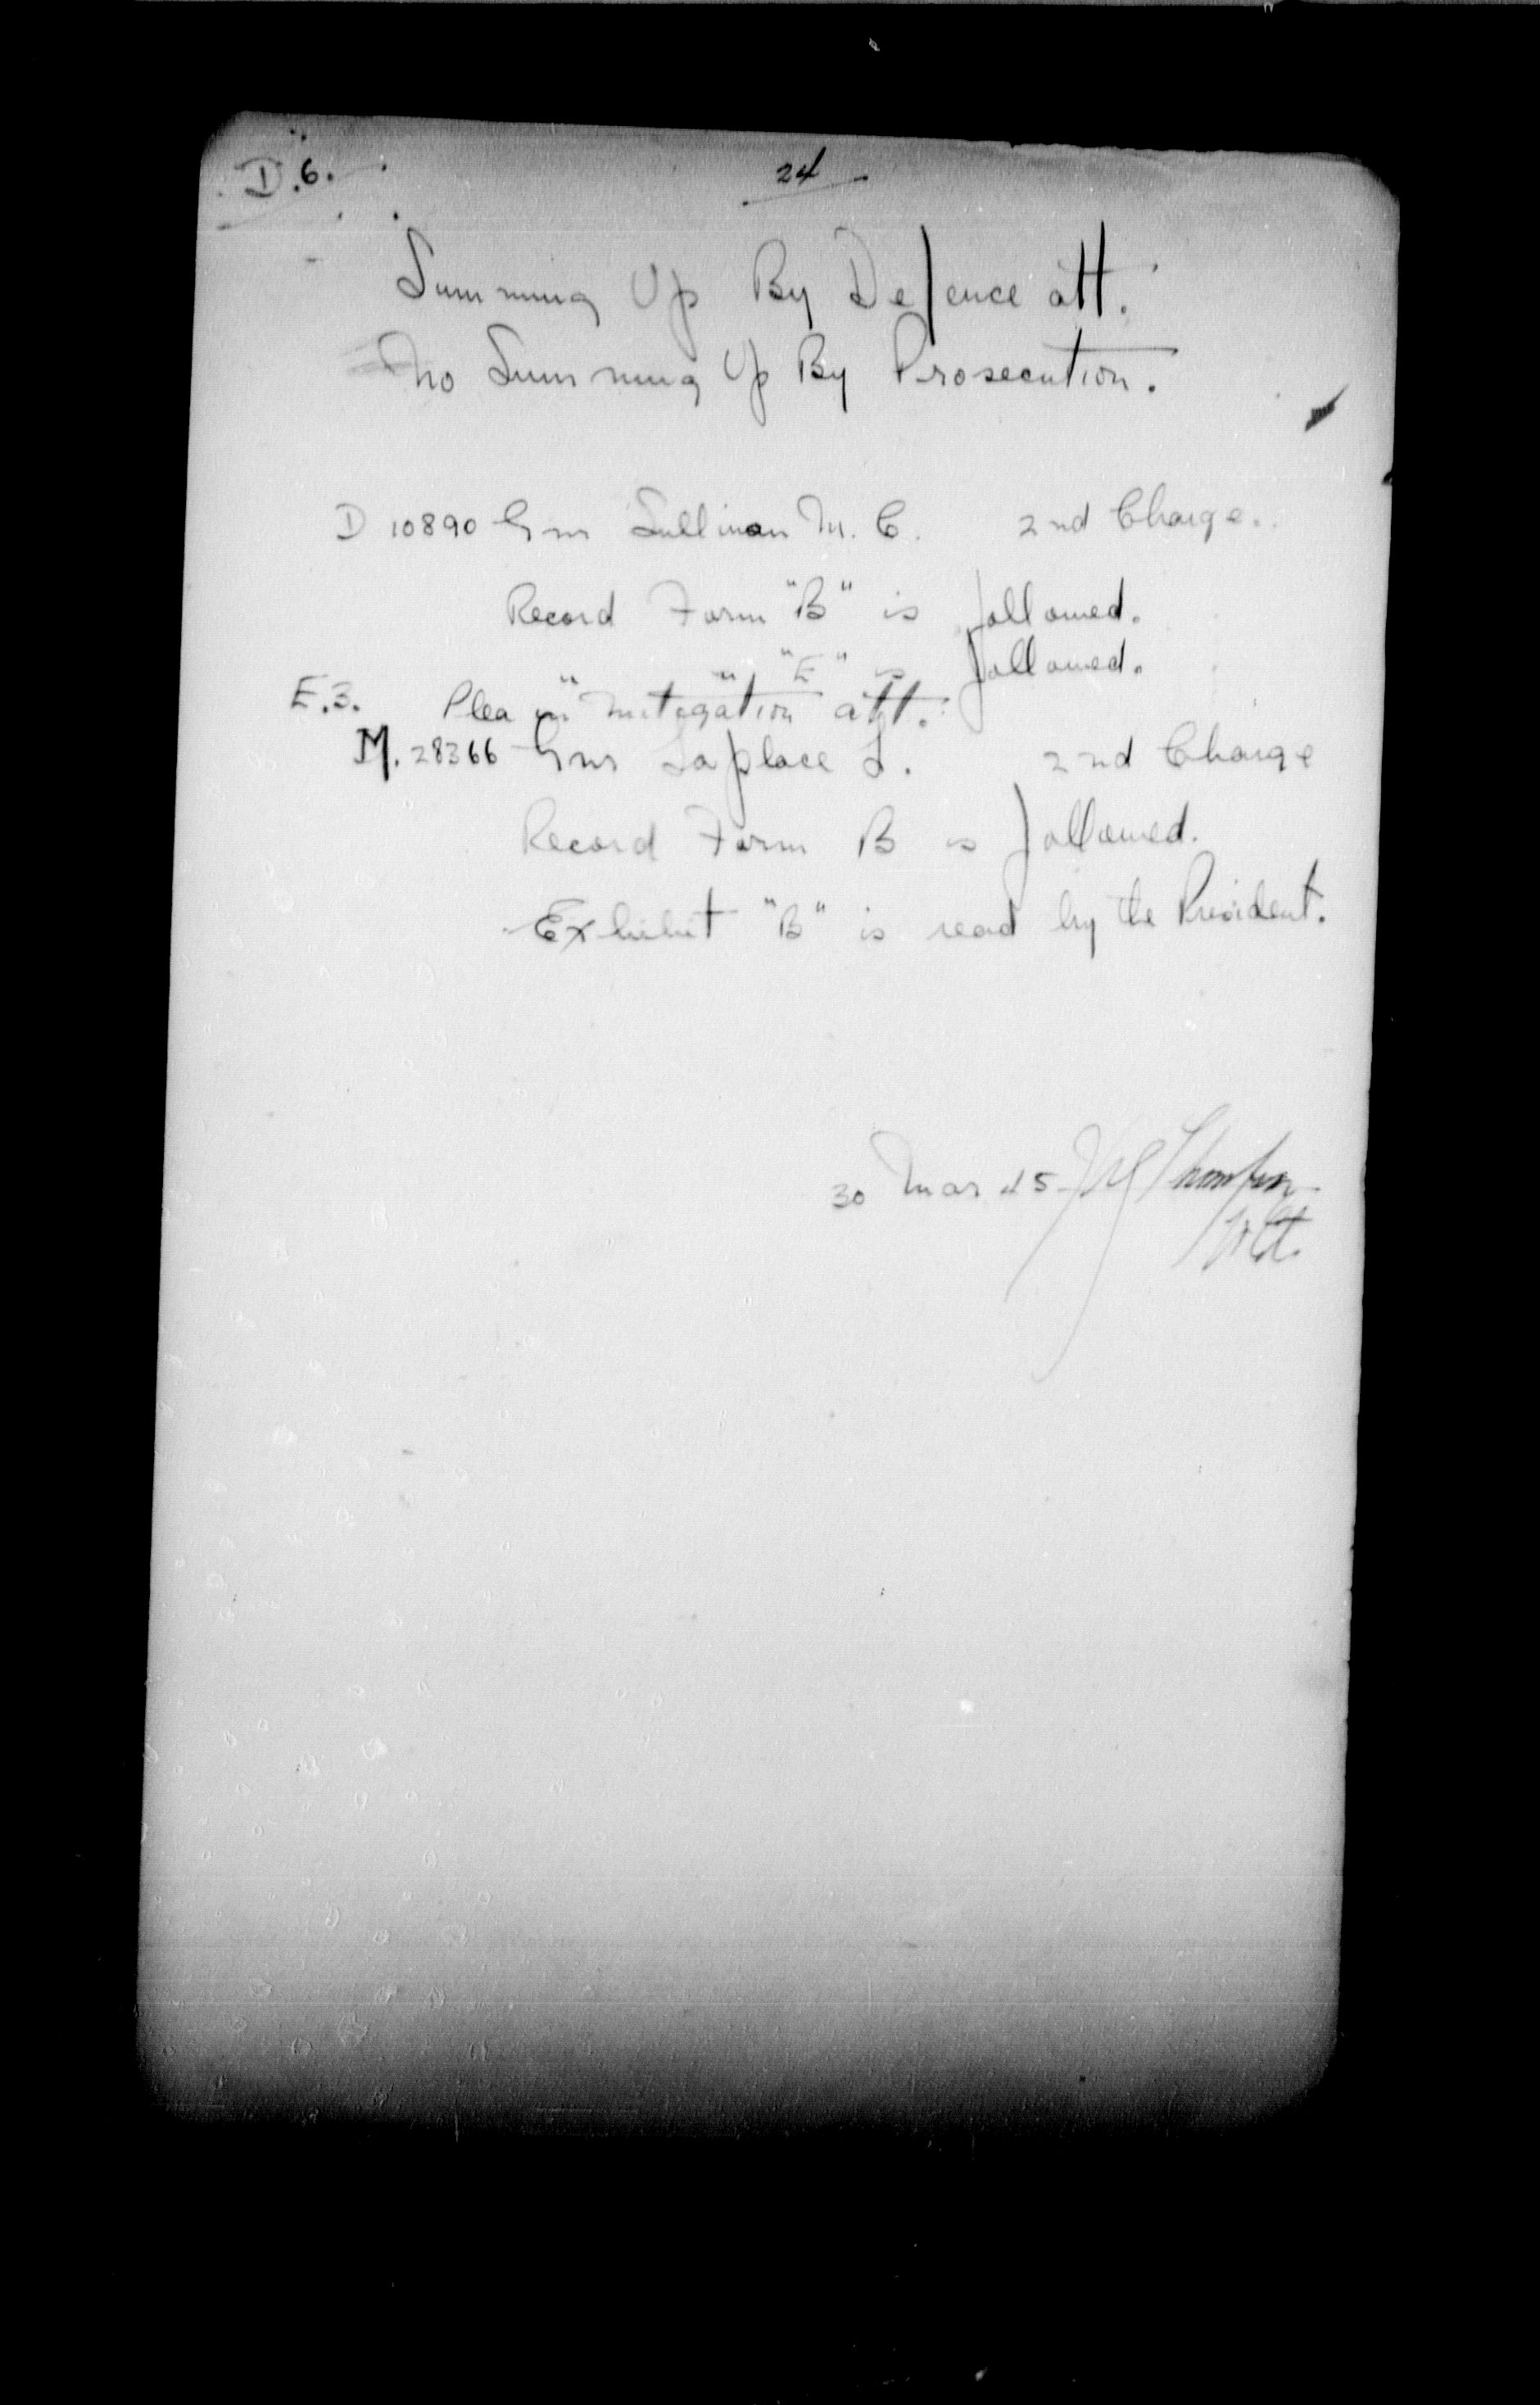 D.6. 24
Summing Up By Defence att.
No Summing Up By Prosecution.
D 10890 Gnr Sullivan M. C. 2nd Charge.
Record Form "B" is followed.
" " "E" is followed.
E.3. Plea in Mitigation att.
M. 28366 Gnr Laplace L. 2nd Charge
Record Form B is followed.
Exhibit "B" is read by the President.
30 Mar 45 Thompson